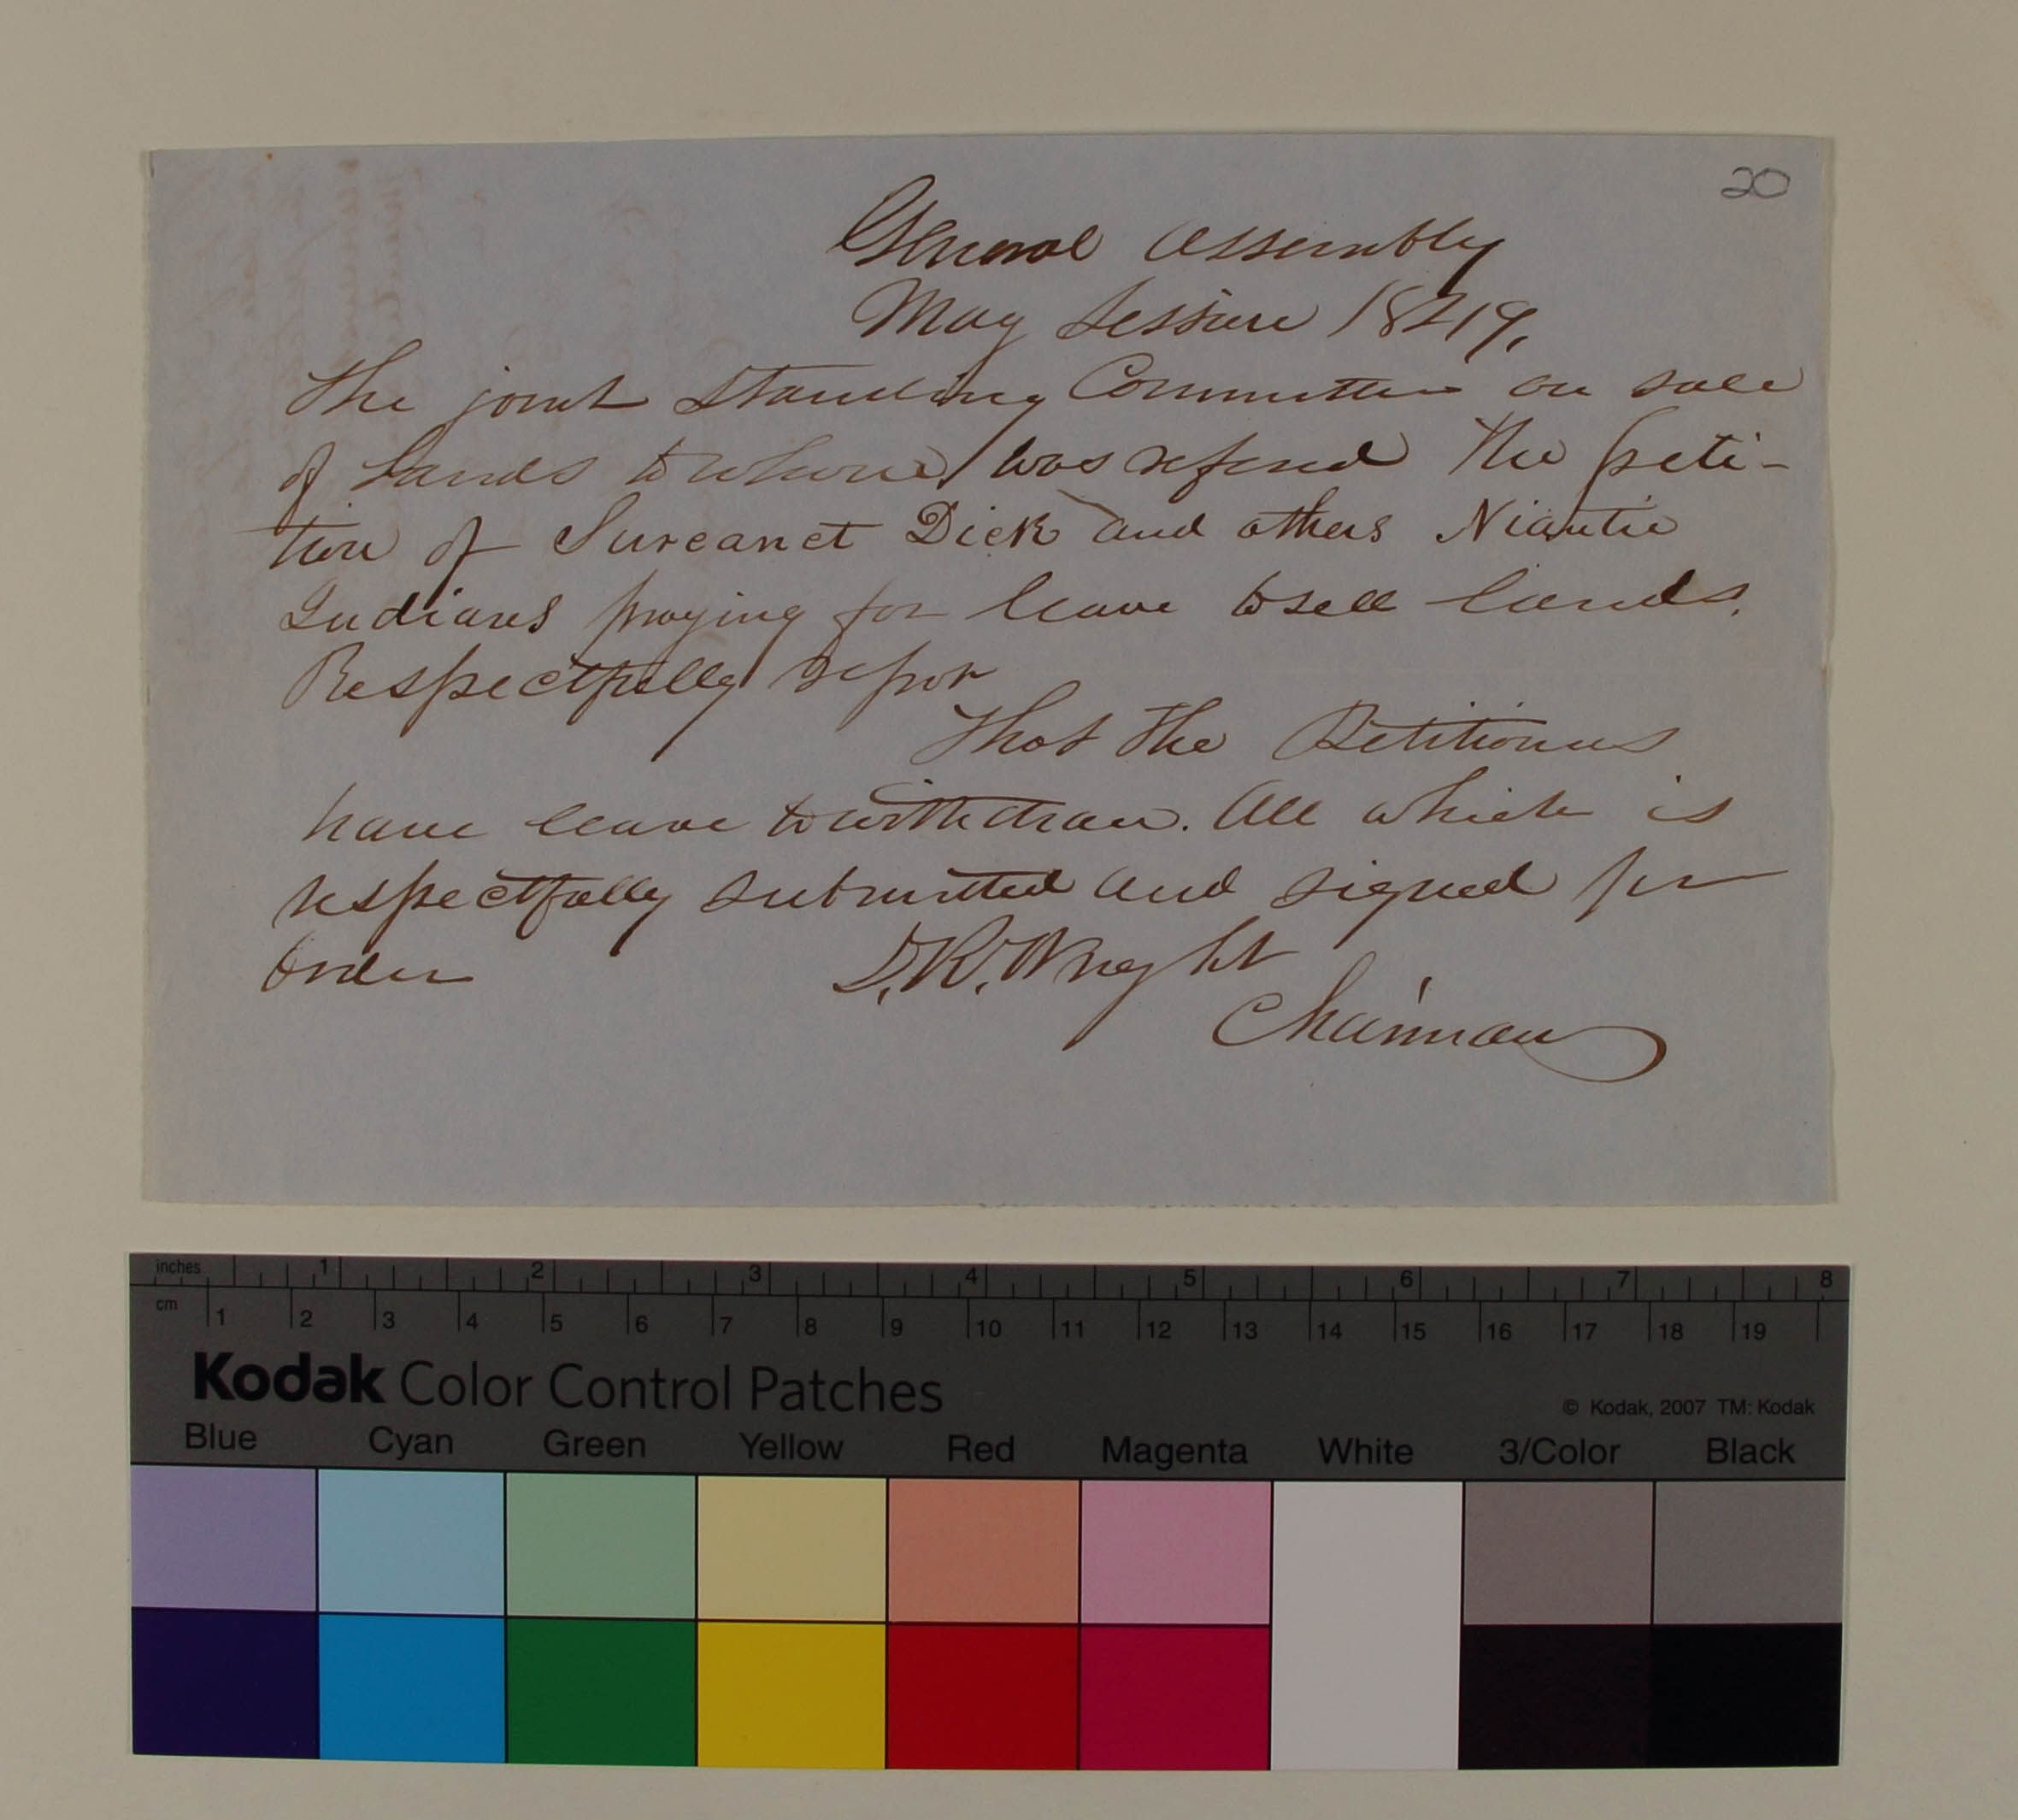 20
General Assembly
May Session 1849,
The joint Standing Committee on sale
of Lands to whom was referred the peti-
tion of Surcanet Dick and others Niantic
Indians praying for leave to sell lands.
Respectfully repor
That the Petitioners
have leave to withdraw. All which is
respectfully submitted and signed per
order D. R. Wright
Chairman
inches 1 2 3 4 5 6 7 8
cm 1 2 3 4 5 6 7 8 9 10 11 12 13 14 15 16 17 18 19
Kodak Color Control Patches
© Kodak, 2007 TM: Kodak
Blue Cyan Green Yellow Red Magenta White 3/Color Black